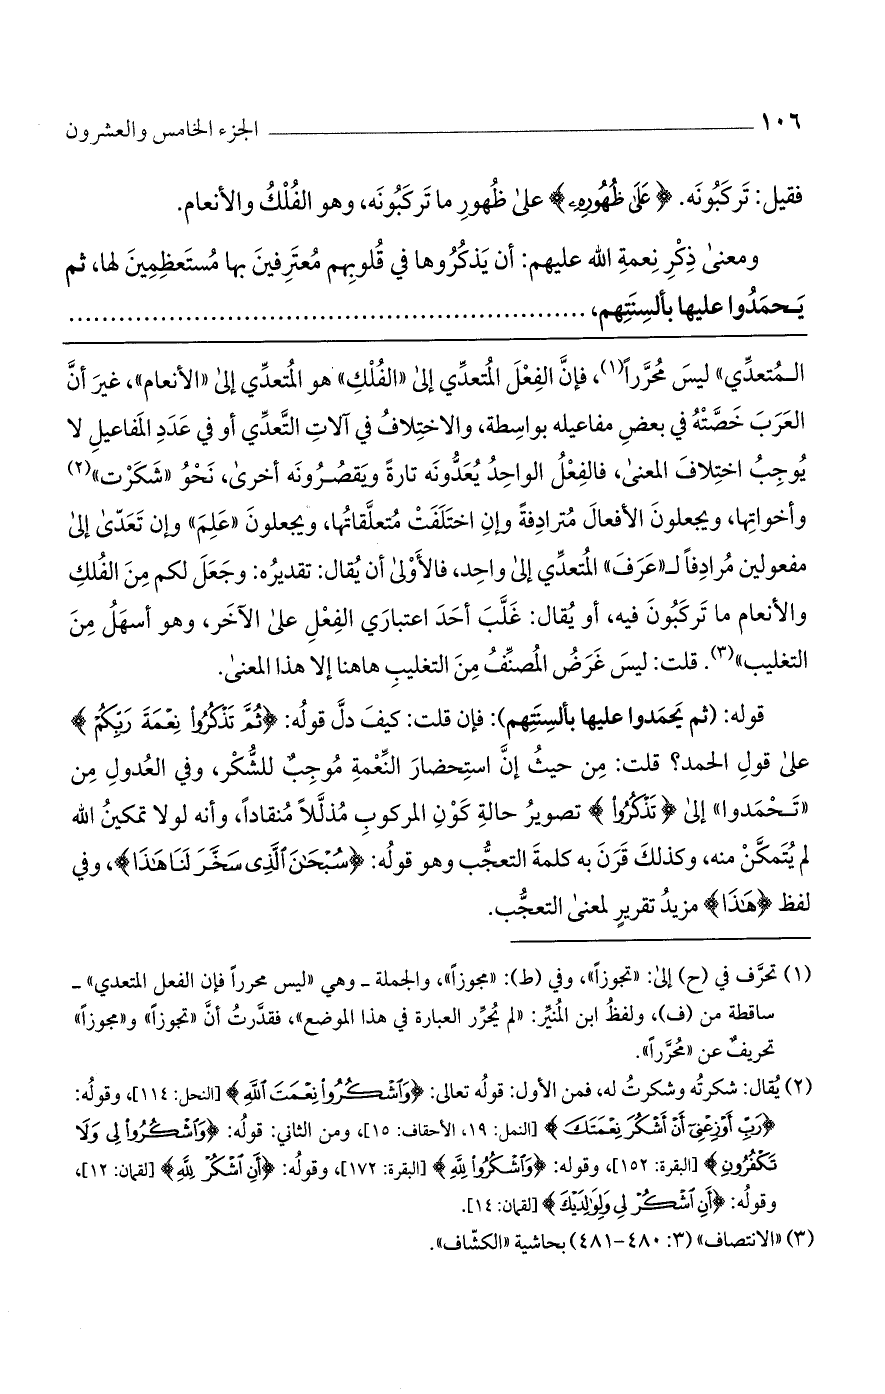 ١٠٦ ــــــــــــــــــــ الجزء الخامس والعشرون
فقيل: تَركَبُونَه. ﴿عَلَى ظُهُورِهِۦ﴾ علىٰ ظُهورِ ما تَركَبُونَه، وهو الفُلْكُ والأنعام.
ومعنىٰ ذِكْرِ نِعمةِ الله عليهم: أن يَذكُرُوها في قُلوبِهم مُعتَرِفينَ بها مُستَعظِمِينَ لها، ثم
يَـحمَدُوا عليها بألسِنَتِهم، ..............................................................
الـمُتعدِّي» ليسَ مُحرَّراً(١)، فإنَّ الفِعْلَ المُتعدِّي إلىٰ «الفُلْكِ» هو المُتعدِّي إلىٰ «الأنعام»، غيرَ أنَّ
العَرَبَ خَصَّتْهُ في بعضِ مفاعيله بواسِطة، والاختِلافُ في آلاتِ التَّعدِّي أو في عَدَدِ المَفاعيلِ لا
يُوجِبُ اختِلافَ المعنىٰ، فالفِعْلُ الواحِدُ يُعَدُّونَه تارةً ويَقصُـرُونَه أخرىٰ، نَحْوُ «شَكَرْت»(٢)
وأخواتِها، ويجعلونَ الأفعالَ مُترادِفةً وإنِ اختَلَفَتْ مُتعلَّقاتُها، ويجعلونَ «عَلِمَ» وإن تَعَدّىٰ إلىٰ
مفعولين مُرادِفاً لـ«عَرَفَ» المُتعدِّي إلىٰ واحِد، فالأَوْلىٰ أن يُقال: تقديرُه: وجَعَلَ لكم مِنَ الفُلكِ
والأنعام ما تَركَبُونَ فيه، أو يُقال: غَلَّبَ أحَدَ اعتبارَيِ الفِعْلِ علىٰ الآخَر، وهو أسهَلُ مِنَ
التغليب»(٣). قلت: ليسَ غَرَضُ المُصنِّفُ مِنَ التغليبِ هاهنا إلا هذا المعنىٰ.
قوله: (ثم يَحمَدوا عليها بألسِنَتِهم): فإن قلت: كيفَ دلَّ قولُه: ﴿ثُمَّ تَذْكُرُوا۟ نِعْمَةَ رَبِّكُمْ﴾
علىٰ قولِ الحمد؟ قلت: مِن حيثُ إنَّ استِحضارَ النِّعْمةِ مُوجِبٌ للشُّكْر، وفي العُدولِ مِن
«تَـحْمَدوا» إلىٰ ﴿تَذْكُرُوا۟﴾ تصويرُ حالةِ كَوْنِ المركوبِ مُذلَّلاً مُنقاداً، وأنه لولا تمكينُ الله
لم يُتَمكَّنْ منه، وكذلكَ قَرَنَ به كلمةَ التعجُّب وهو قولُه: ﴿سُبْحَٰنَ ٱلَّذِى سَخَّرَ لَنَا هَٰذَا﴾، وفي
لفظ ﴿هَٰذَا﴾ مزيدُ تقريرٍ لمعنىٰ التعجُّب.
(١) تحرَّف في (ح) إلىٰ: «تجوزاً»، وفي (ط): «مجوزاً»، والجملة ـ وهي «ليس محرراً فإن الفعل المتعدي» ـ
ساقطة من (ف)، ولفظُ ابن المُنيِّر: «لم يُحرِّر العبارة في هذا الموضع»، فقدَّرتُ أنَّ «تجوزاً» و«مجوزاً»
تحريفٌ عن «مُحرَّراً».
(٢) يُقال: شكرتُه وشكرتُ له، فمن الأول: قولُه تعالى: ﴿وَٱشْكُرُوا۟ نِعْمَتَ ٱللَّهِ﴾ [النحل: ١١٤]، وقولُه:
﴿رَبِّ أَوْزِعْنِىٓ أَنْ أَشْكُرَ نِعْمَتَكَ﴾ [النمل: ١٩، الأحقاف: ١٥]، ومن الثاني: قولُه: ﴿وَٱشْكُرُوا۟ لِى وَلَا
تَكْفُرُونِ﴾ [البقرة: ١٥٢]، وقوله: ﴿وَٱشْكُرُوا۟ لِلَّهِ﴾ [البقرة: ١٧٢]، وقولُه: ﴿أَنِ ٱشْكُرْ لِلَّهِ﴾ [لقمان: ١٢]،
وقولُه: ﴿أَنِ ٱشْكُرْ لِى وَلِوَٰلِدَيْكَ﴾ [لقمان: ١٤].
(٣) «الانتصاف» (٣: ٤٨٠-٤٨١) بحاشية «الكشّاف».